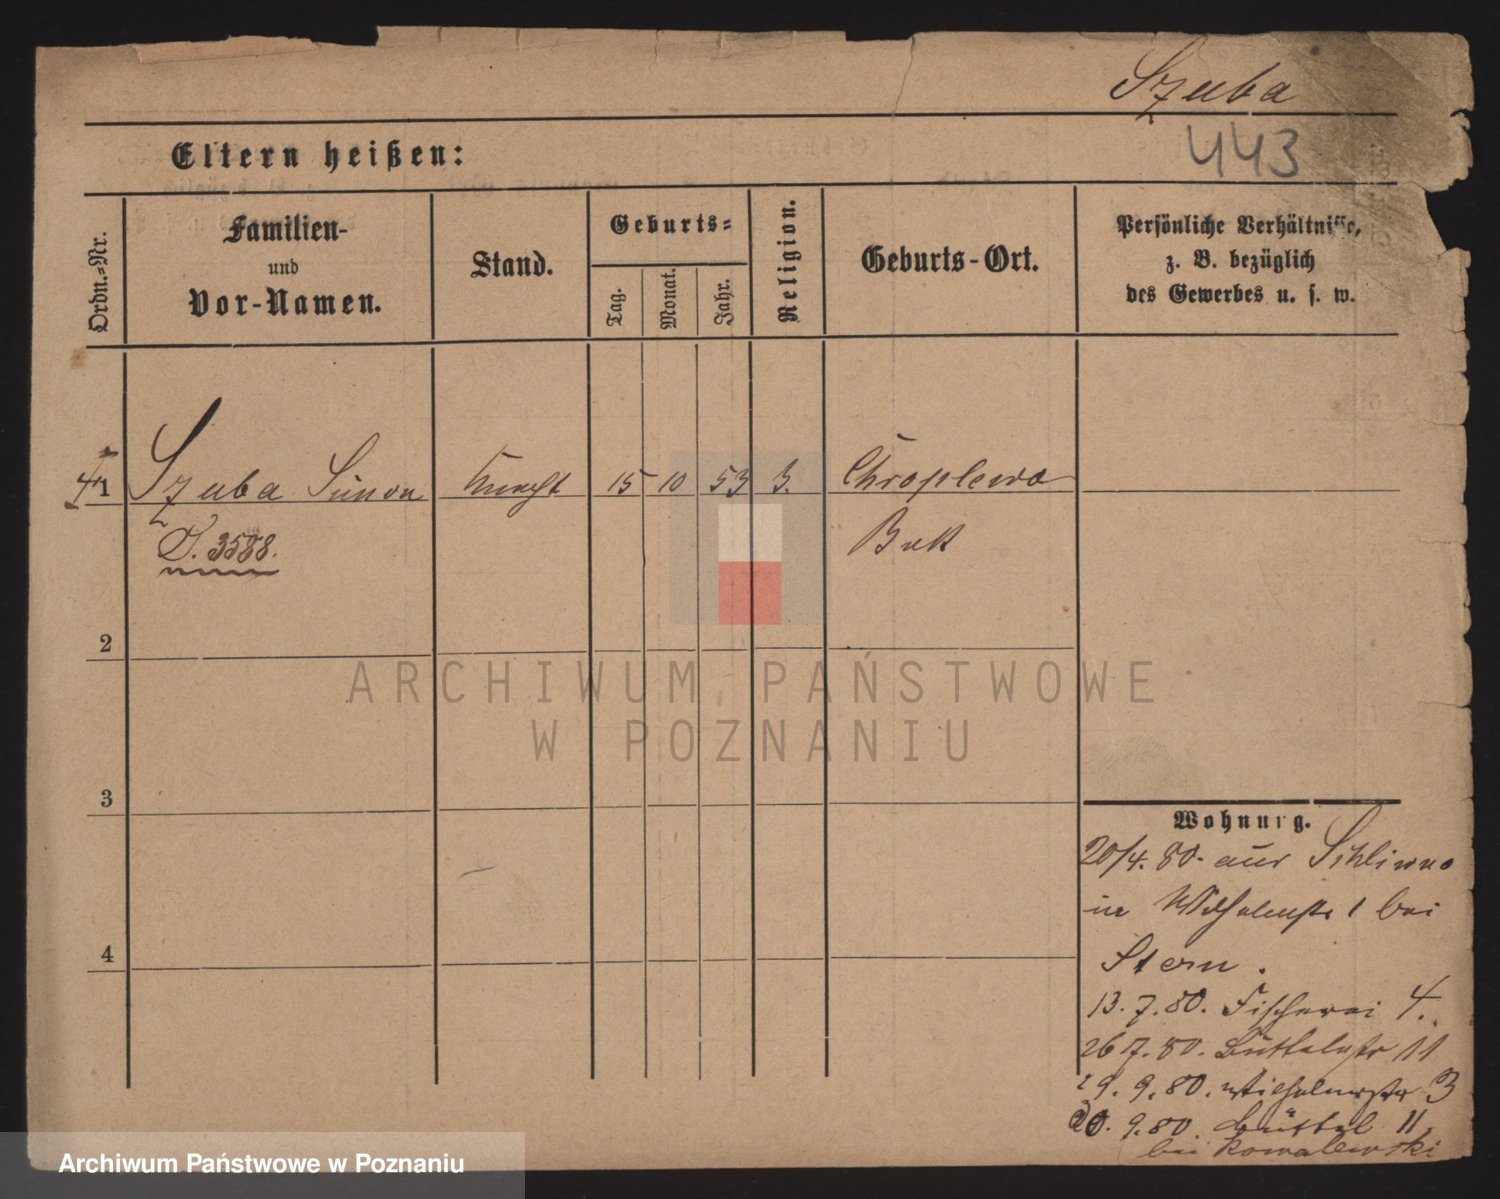 Szuba
443
Eltern heißen:
Ordn.-Nr.
Familien-
und
Vor-Namen.
Stand.
Geburts-
Tag.
Monat.
Jahr.
Religion.
Geburts-Ort.
Persönliche Verhältnisse,
z. B. bezüglich
des Gewerbes u. s. w.
1 Szuba Simon Knecht 15 10 53 Chroplewo
3588. Buk
2
3
4
Wohnung.
20/4. 80. aus Schliwno
in Wilhelmstr 1 bei
Stern.
13. 7. 80. Fischerei 4.
26 7. 80. Büttelstr 11
29. 9. 80. Wilhelmstr 3
9. 80. Büttel 11
bei Kowalewski
ARCHIWUM PAŃSTWOWE
W POZNANIU
Archiwum Państwowe w Poznaniu